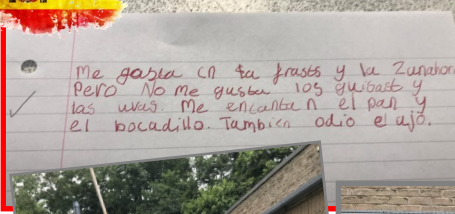 me gasta cn ta frasts y la Zanahori
Pero No me gusta los guisast y
las uvas. Me encanta n el pan y
el bocadillo. Tambien odio el ajo.